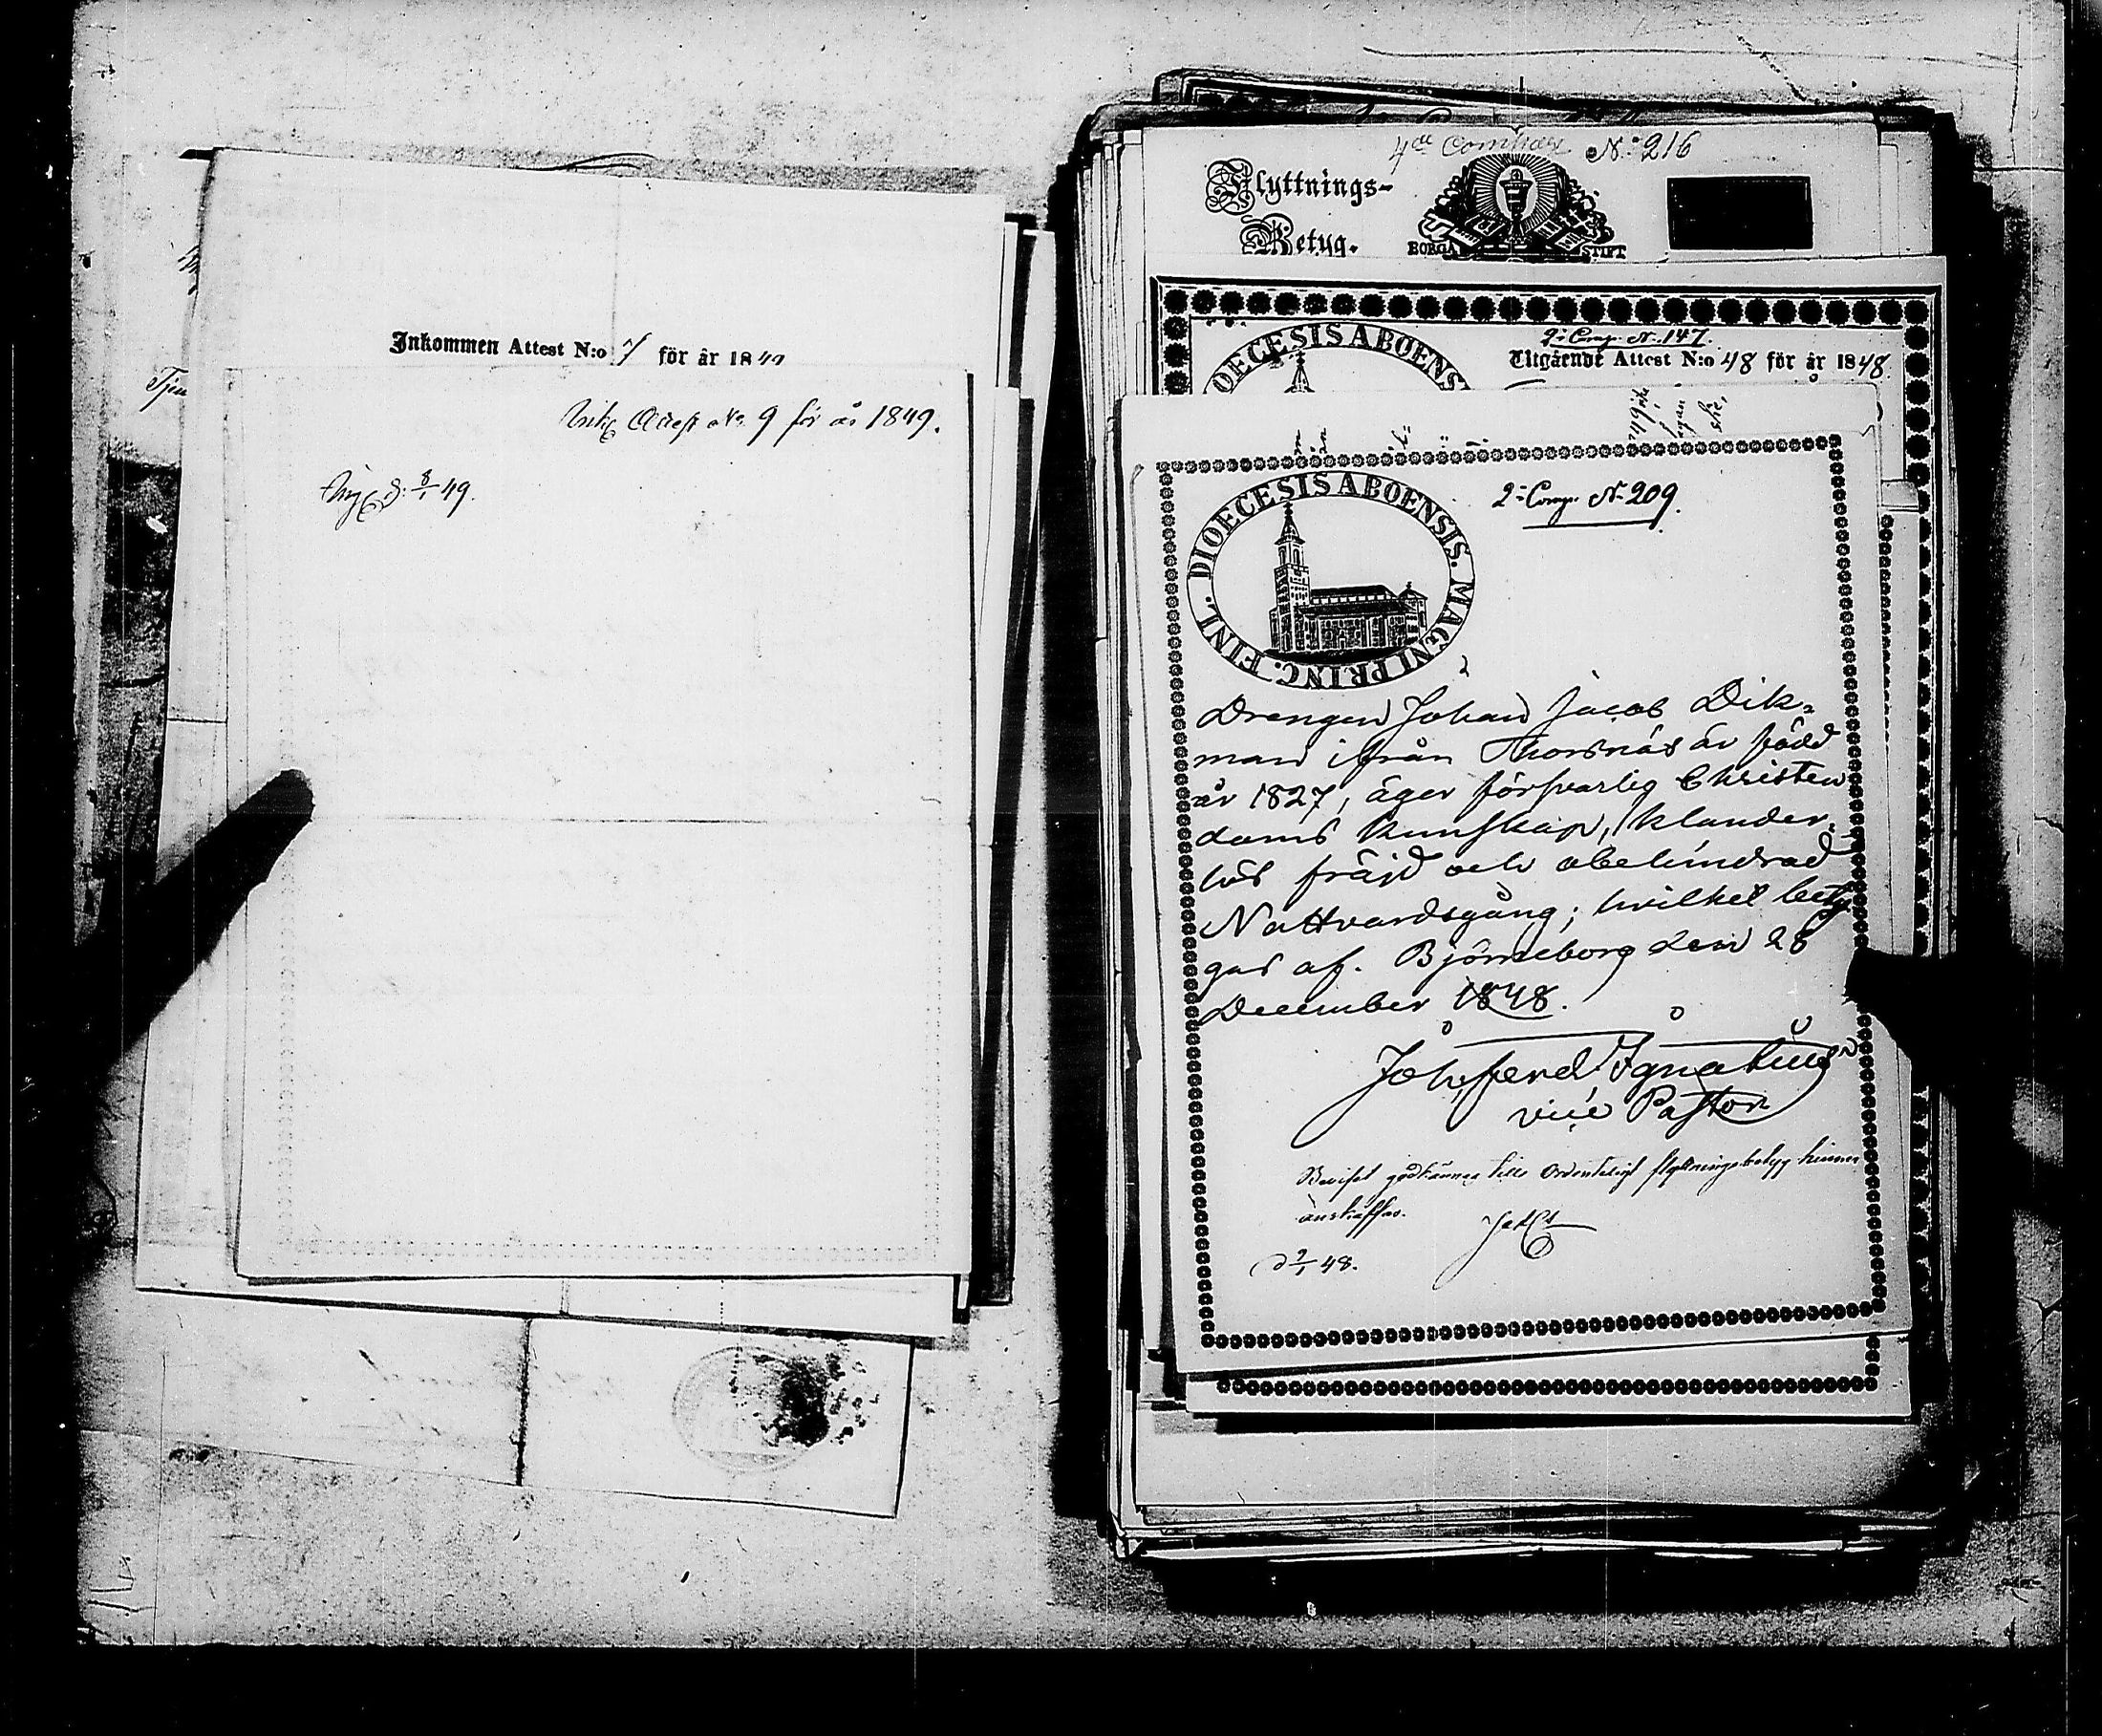 Inkommen Attest N:o 7 för år 1849
Attest No 9 för år 1849.
d: 8/1 49.
4de Comp N:o 216
Flyttnings-
Betyg.
BORGÅ STIFT
2: Comp. N: 147.
Utgående Attest N:o 48 för år 1848.
DIOECESIS ABOENS
2: Comp. N: 209.
DIOECESIS ABOENSIS. MAGNI PRINC. FINL.
Drengen Johan Jacob Dik-
man ifrån Thorsnäs är född
år 1827, äger försvarlig Christen
doms kunskap, klander-
lös fräjd och obehindrad
Nattvardsgång; hvilket bety
gas af. Björneborg den 28
December 1848.
Joh. Ferd. Ignatius
vice Pastor
Beviset godkännes tills Ordenteligt flyttningsbetyg hinner
anskaffas.
d 2/1 48.